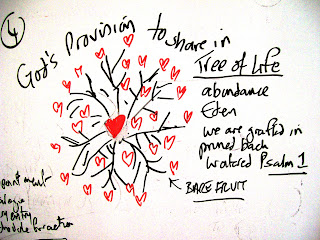 4
God's Provision to share in
Tree of Life
abundance
Eden
we are grafted in
pruned back
watered Psalm 1
BARE FRUIT